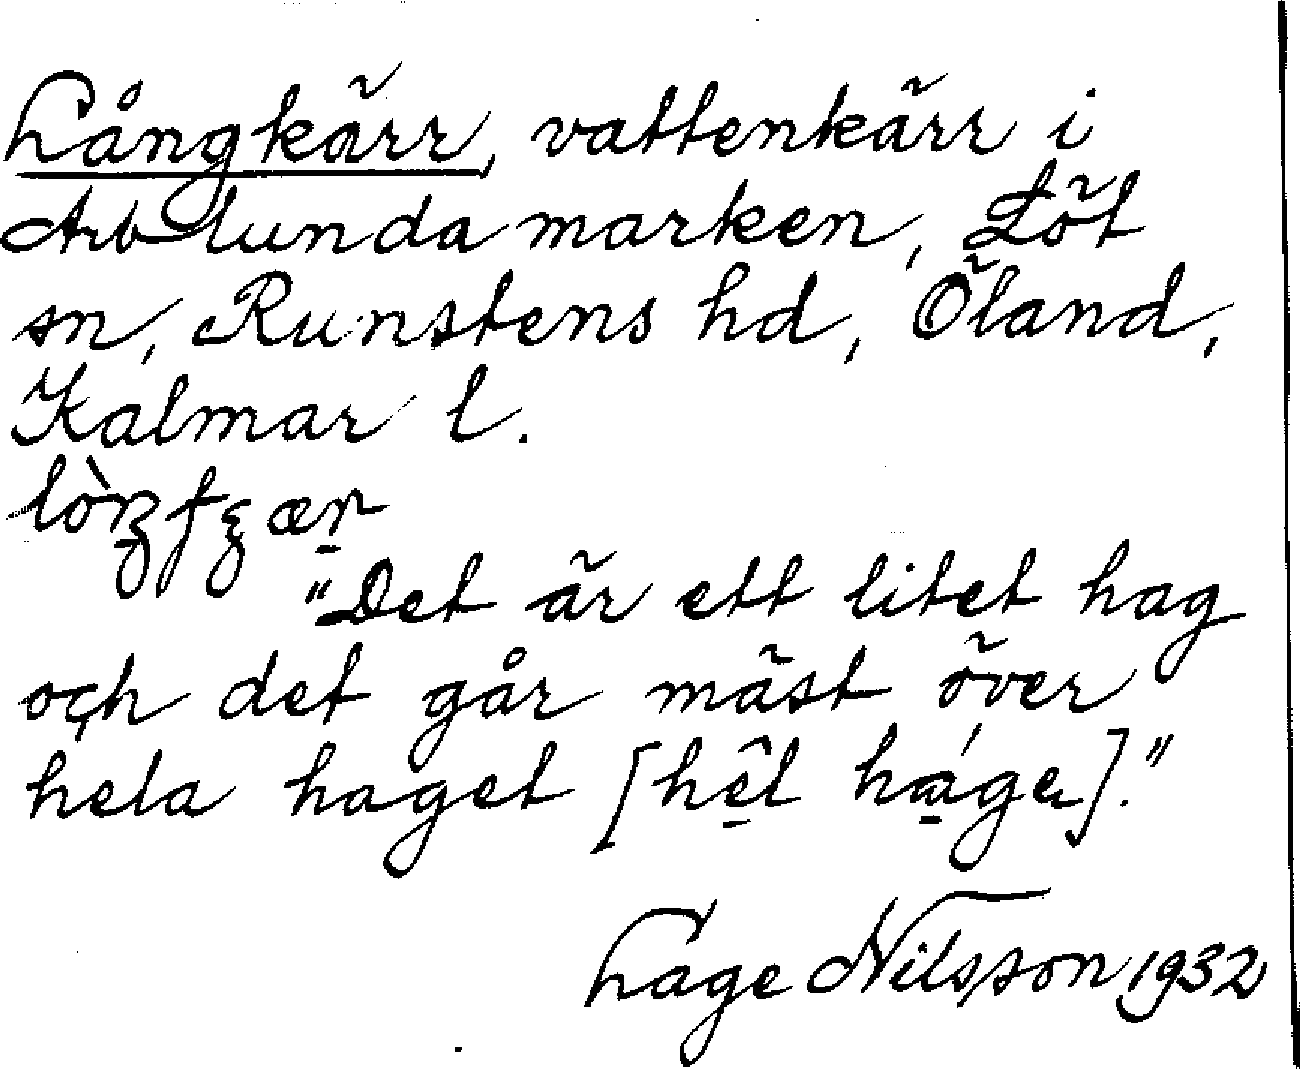 Långkärr, vattenkärr i
Arbelundamarken, Löt
sn, Runstens hd, Öland,
Kalmar l.
"Det är ett litet hag
och det går mäst över
hela haget [hel hage]."
Lage Nilsson 1932